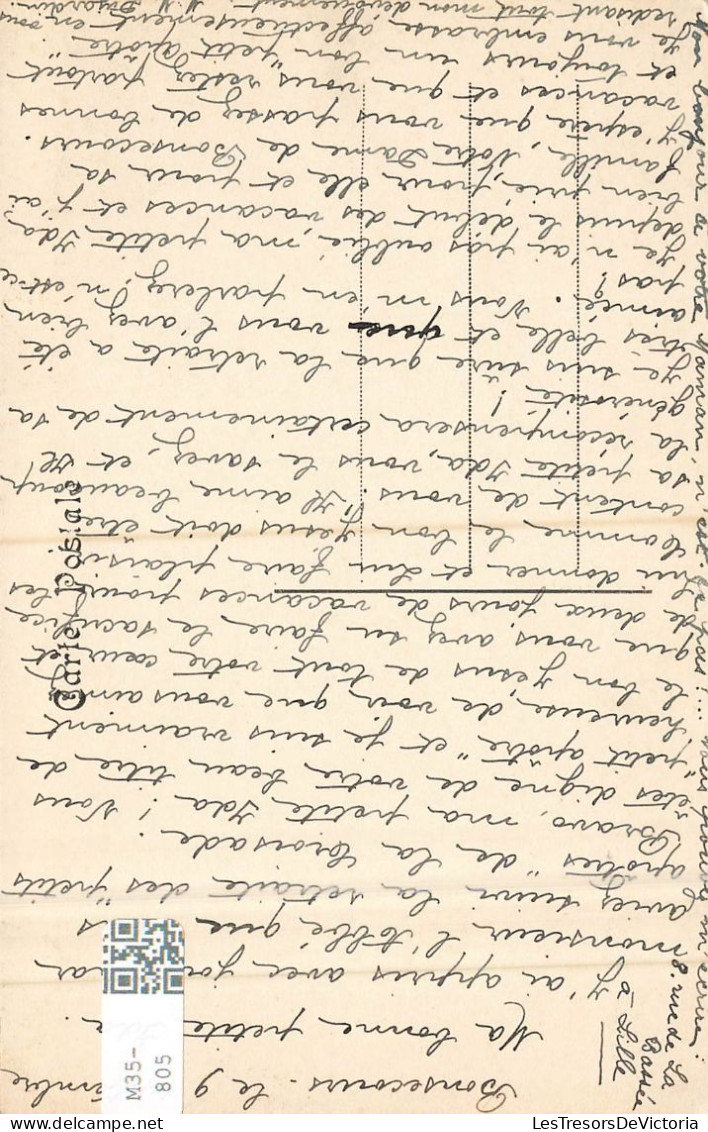 Bonsecours - le 9
Ma bonne petite
J'ai appris avec joie par
monsieur l'Abbé, que
aviez suivi la retraite des "petits
apôtres" de la Croisade.
Bravo, ma petite Ida! Vous
êtes digne de votre beau titre de
"petit apôtre" et je suis vraiment
heureuse, de voir que vous aimez
le bon Jésus de tout votre cœur, et
que vous avez su faire le sacrifice
de deux jours de vacances pour les
Lui donner et Lui faire plaisir
Comme le bon Jésus doit être
content de vous! Il aime beaucoup
sa petite Ida, vous le savez, et Il
la récompensera certainement de sa
générosité!
Je suis sûre que la retraite a été
très belle et que vous l'avez bien
aimée. Vous m'en parlerez, n'est-ce
pas?
Je n'ai pas oublié, ma petite Ida,
depuis le début des vacances et j'ai
bien prié, pour elle et pour sa
famille, Notre Dame de Bonsecours.
J'espère que vous passez de bonnes
vacances et que vous restez partout
et toujours un bon "petit apôtre".
Je vous embrasse affectueusement en vous
redisant tout mon dévouement
Mon bonjour à votre Maman, n'est-ce pas!... vous pouvez m'écrire:
8. rue de La
Bassée
à Lille
Carte Postale
M35-
805
www.LesTresorsDeVictoria.com